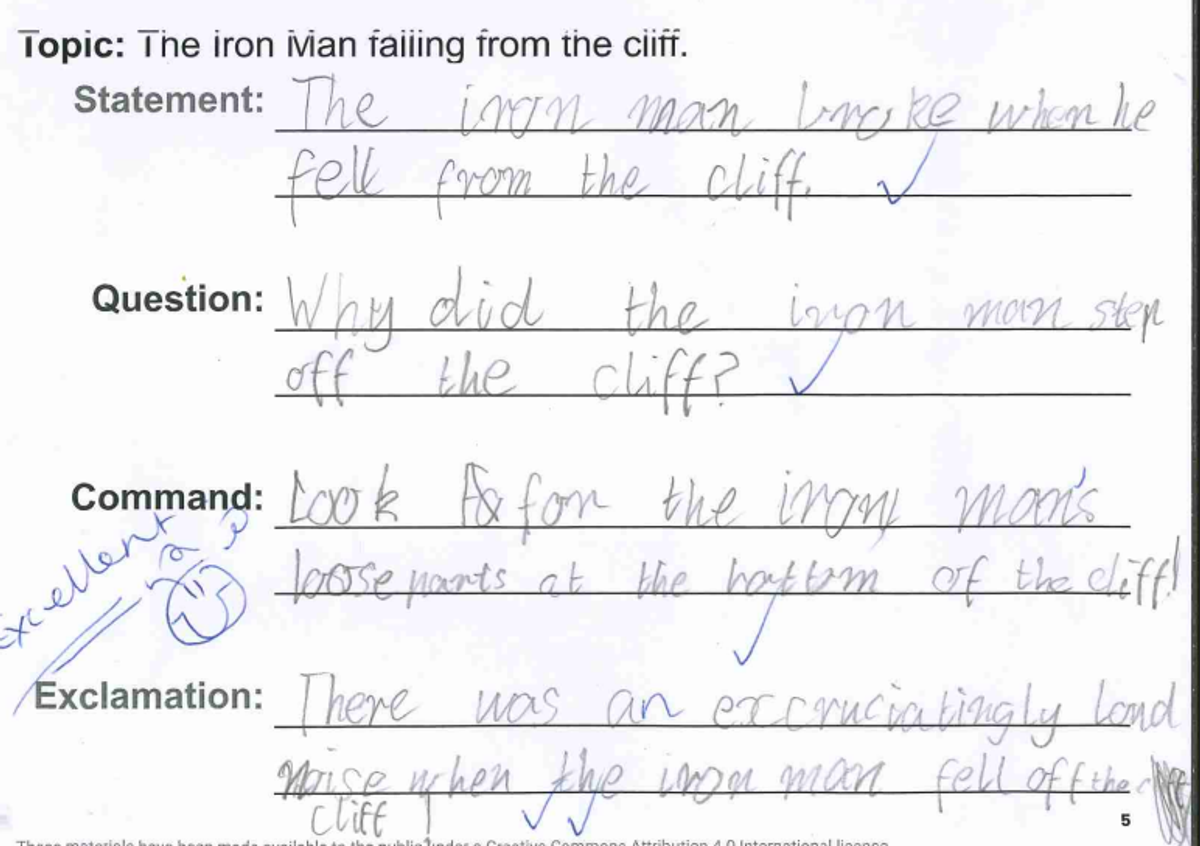 Topic: The Iron Man falling from the cliff.
Statement: The iron man broke when he
fell from the cliff.
Question: Why did the iron man step
off the cliff?
Command: Look for the iron man's
loose parts at the bottom of the cliff!
Excellent
Exclamation: There was an excruciatingly loud
noise when the iron man fell off the
cliff!
5
These materials have been made available to the public under a Creative Commons Attribution 4.0 International license